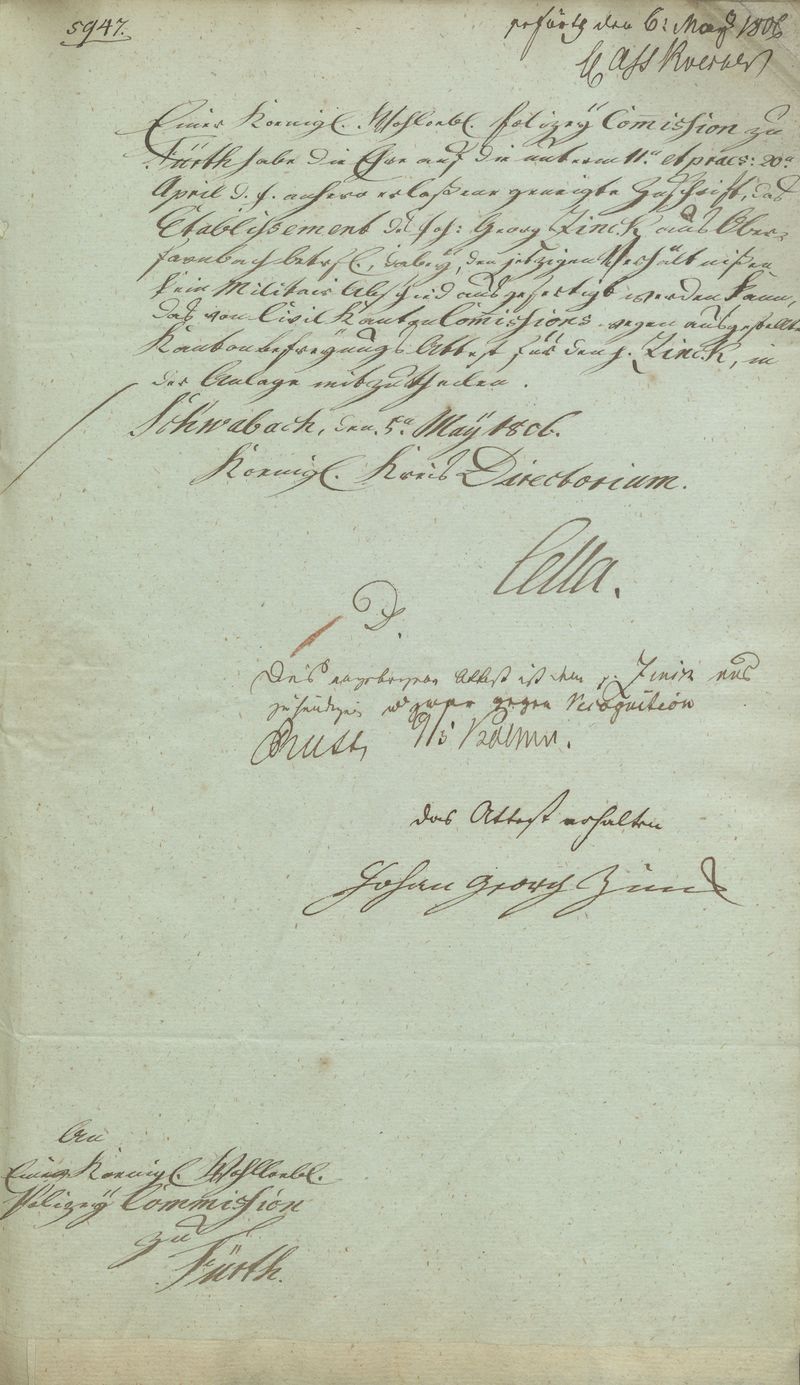 5947.
den 6: May 1806
Einer Koenigl. Wohlloebl. Polizey Comission zu
Fürth habe die Ehre auf die unterm 11.n et praes: 20.n
April d. J. anhero erlaßene geneigte Zuschrift, das
Etablissement des Joh: Georg Zinck aus Ober-
farnbach betrfl., dabey den jetzigen Verhältnißen
kein Militair Abschied ausgefertigt werden kann,
das von Civil Kanton Comissions wegen ausgestellte
Kantonbefreyungs Attest für den p. Zinck, in
der Anlage mitzutheilen.
Schwabach, den 5.n May 1806.
Koenigl. Kreis Directorium.
Cella.
D.
Attest ist dem p. Zinck aus
zuhändigen gegen Recognition
das Attest erhalten
Johan Georg Zinck
An
Eine Koenigl. Wohlloebl.
Polizey Commission
zu
Fürth.